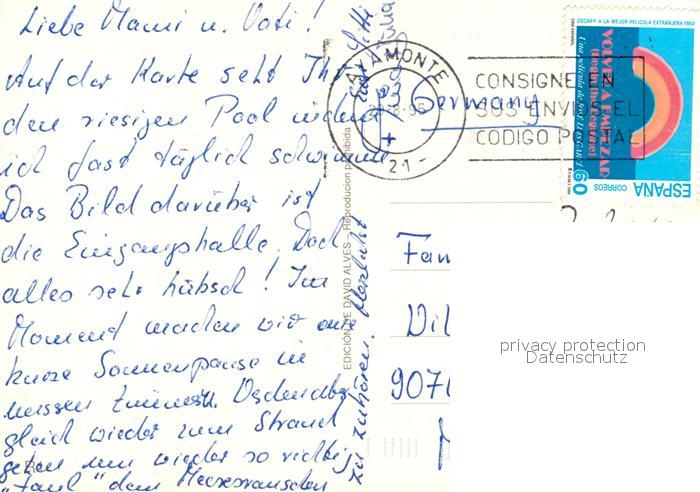 Liebe Mami u. Vati!
Auf der Karte seht Ihr
den riesigen Pool indem
ich fast täglich schwimme
Das Bild darüber ist
die Eingangshalle. Doch
alles sehr hübsch! Im
Moment machen wir eine
kurze Sonnenpause in
unserem Zimmer.
gleich wieder zum Strand
gehen um wieder so richtig
"faul" dem Meeresrauschen
zu zuhören. Herzlichst
EDICIÓN DE DAVID ALVES - Reproducion prohibida
AYAMONTE
21-
CONSIGNE EN
SUS ENVIOS EL
CODIGO POSTAL
Germany
OSCAR A LA MEJOR PELICULA EXTRANJERA 1982
VOLVER A EMPEZAR
(Begin the Beguine)
Una película de JOSE LUIS GARCI
60
CORREOS
ESPAÑA
Fam
Dil
9071
privacy protection
Datenschutz